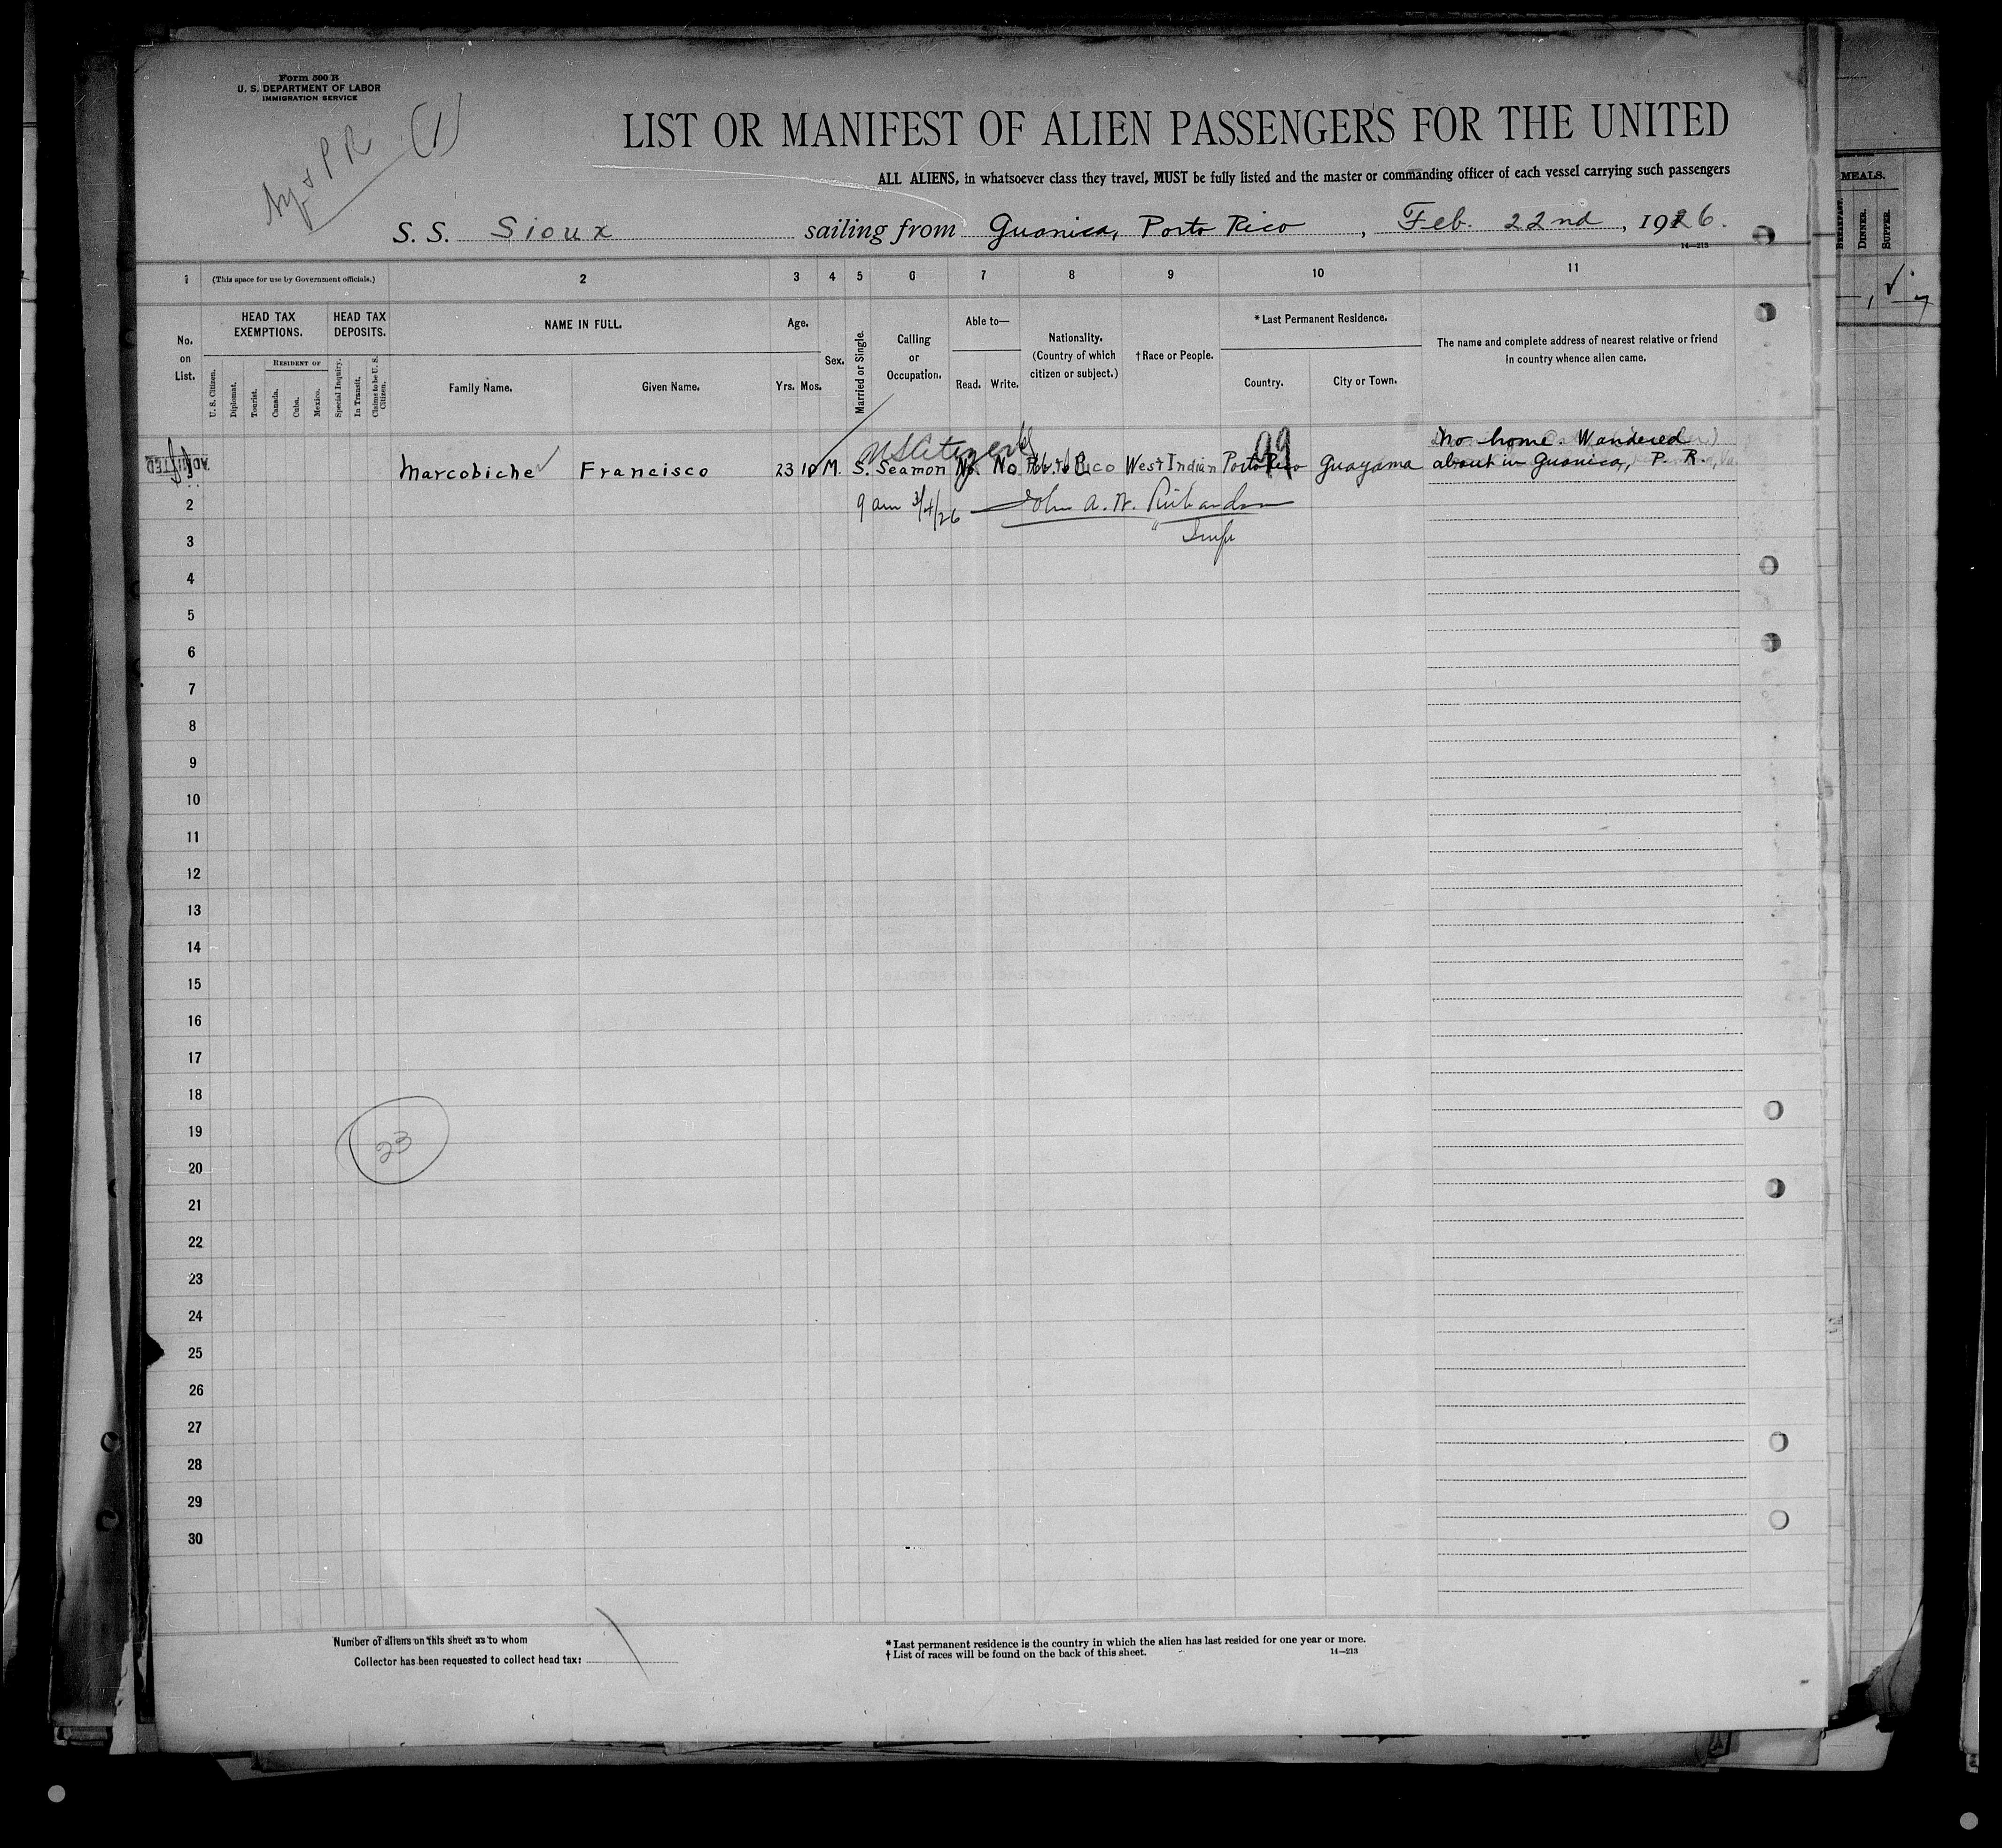 Form 500 B
U. S. DEPARTMENT OF LABOR
IMMIGRATION SERVICE
(1)
LIST OR MANIFEST OF ALIEN PASSENGERS FOR THE UNITED
ALL ALIENS, in whatsoever class they travel, MUST be fully listed and the master or commanding officer of each vessel carrying such passengers
S. S. Sioux sailing from Guanica, Porto Rico, Feb. 22nd, 1926.
14—213
1 (This space for use by Government officials.) 2 3 4 5 6 7 8 9 10 11
No. on List.
HEAD TAX EXEMPTIONS.
HEAD TAX DEPOSITS.
RESIDENT OF
U. S. Citizen.
Diplomat.
Tourist.
Canada.
Cuba.
Mexico.
Special Inquiry.
In Transit.
Claims to be U. S. Citizen.
NAME IN FULL.
Family Name.
Given Name.
Age.
Yrs. Mos.
Sex.
Married or Single.
Calling or Occupation.
Able to—
Read. Write.
Nationality. (Country of which citizen or subject.)
†Race or People.
*Last Permanent Residence.
Country.
City or Town.
The name and complete address of nearest relative or friend in country whence alien came.
US Citizen
99
No home. Wandered
ADMITTED
Marcobiche Francisco 23 10 M. S. Seaman No. No Porto Rico West Indian Porto Rico Guayama about in Guanica, P. R.
2
9 am 3/4/26 John A. W. Richardson
3
Insp
4
5
6
7
8
9
10
11
12
13
14
15
16
17
18
19
23
20
21
22
23
24
25
26
27
28
29
30
Number of aliens on this sheet as to whom
Collector has been requested to collect head tax:
* Last permanent residence is the country in which the alien has last resided for one year or more.
† List of races will be found on the back of this sheet.
14—213
MEALS.
BREAKFAST.
DINNER.
SUPPER.